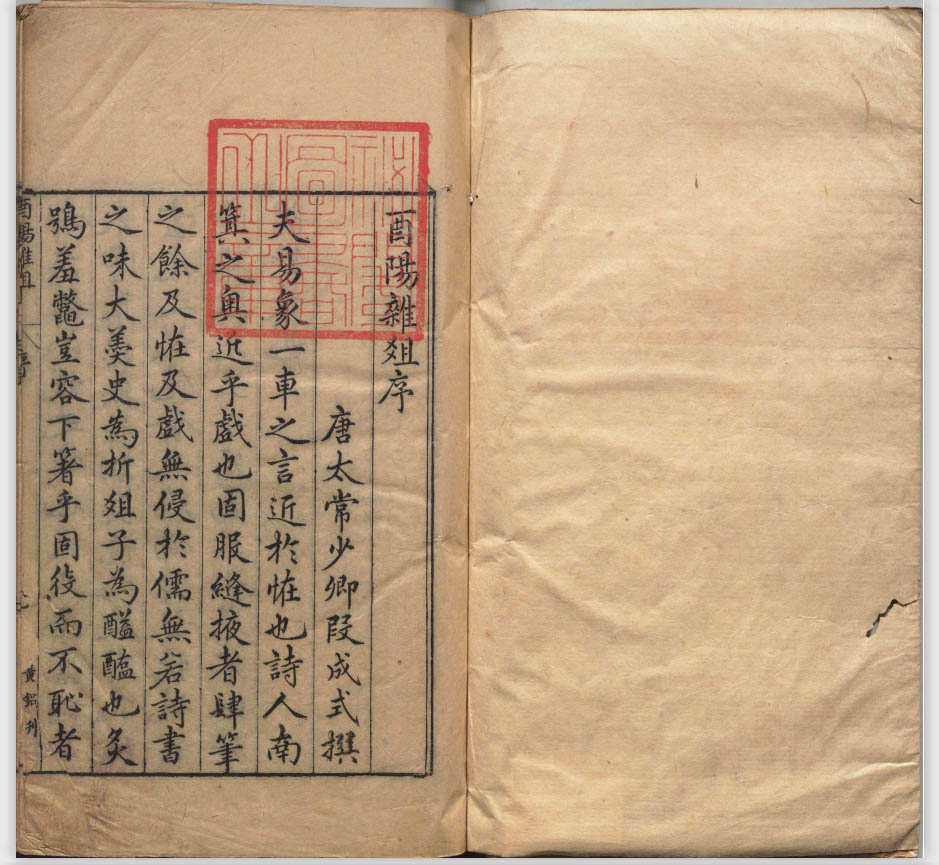 酉陽雜爼序
唐太常少卿段成式撰
夫易象一車之言近於恠也詩人南
箕之奥近乎戲也固服縫掖者肆筆
之餘及恠及戲無侵於儒無若詩書
之味大羮史為折爼子為醯醢也炙
鴞羞鼈豈容下箸乎固役而不恥者
酉陽雜爼
序
黄鋁刋